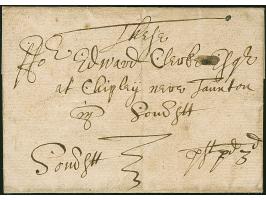 These
ffor Edward Clerke Esqr
at Chipley neere Taunton
in
Somsett
Somsett pst pd 3d